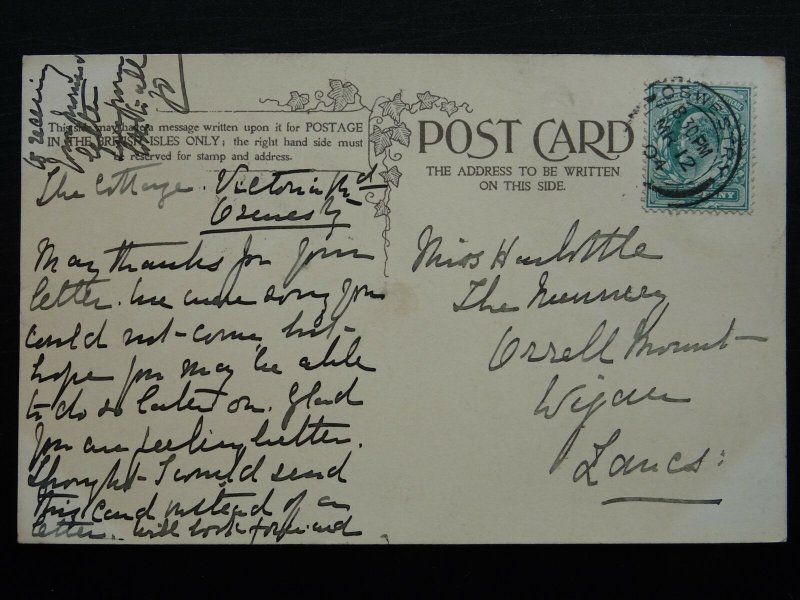 This side may have a message written upon it for POSTAGE
IN THE BRITISH ISLES ONLY; the right hand side must
be reserved for stamp and address.
POST CARD
THE ADDRESS TO BE WRITTEN
ON THIS SIDE.
OSWESTRY
MY 12
04
The Cottage. Victoria Rd
Oswestry
Many thanks for your
letter. We were sorry you
could not come, but
hope you may be able
to do so later on. Glad
you are feeling better.
Thought I would send
this card instead of a
letter. Will look forward
to hearing
promised
letter
from
all
Miss Harbottle
The Nunnery
Orrell Mount
Wigan
Lancs: